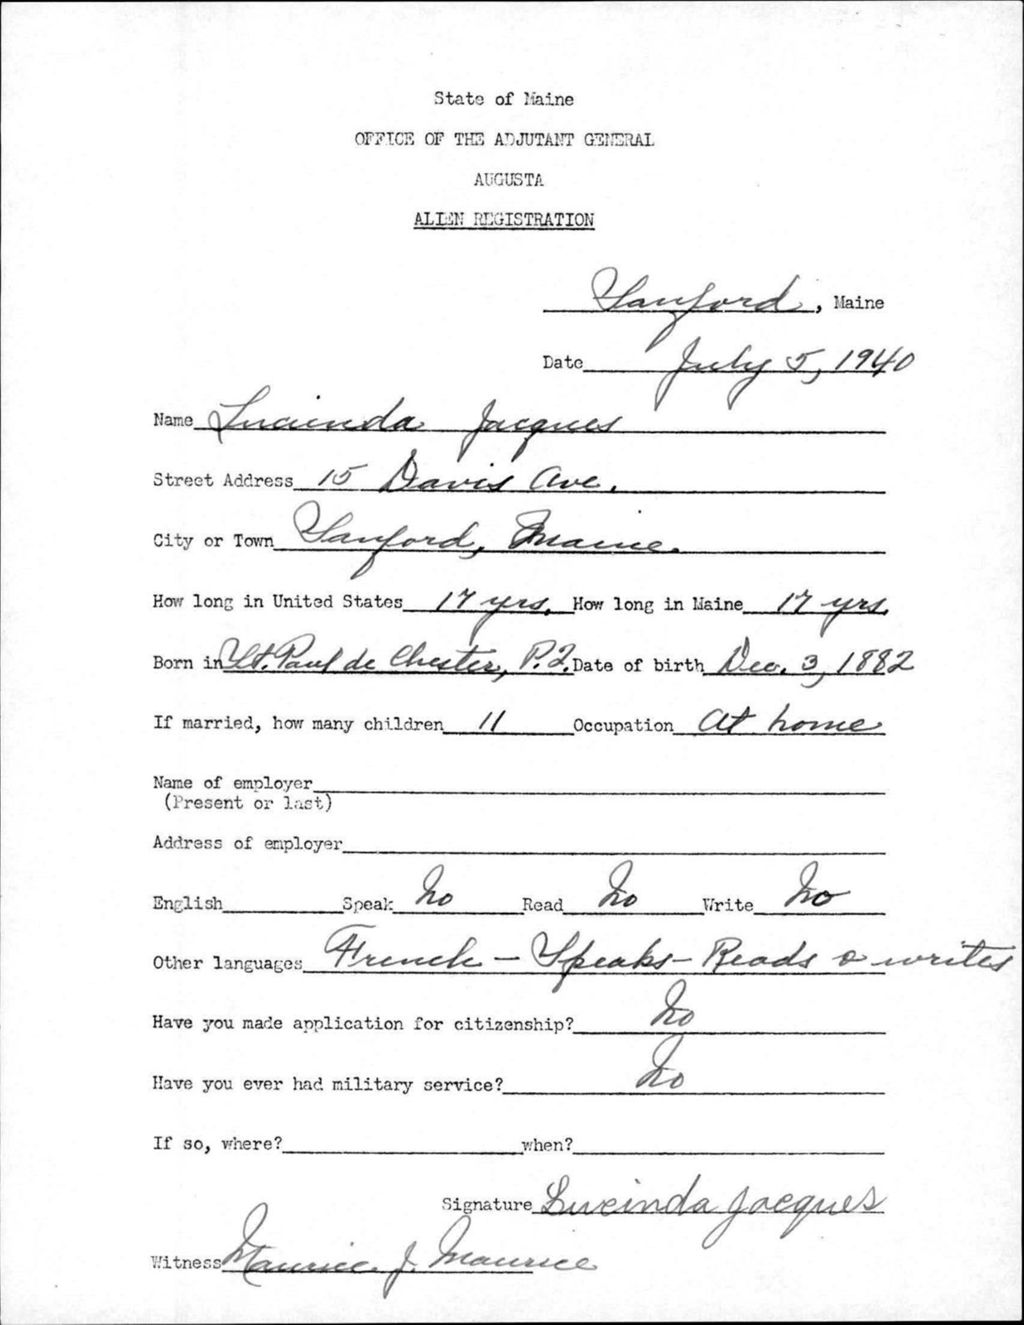 State of Maine
OFFICE OF THE ADJUTANT GENERAL
AUGUSTA
ALIEN REGISTRATION
Sanford, Maine
Date July 5, 1940
Name Lucienda Jacques
Street Address 15 Davis Ave.
City or Town Sanford, Maine.
How long in United States 17 yrs. How long in Maine 17 yrs.
Born in St. Paul de Chester, P.Q. Date of birth Dec. 3, 1882
If married, how many children 11 Occupation At home
Name of employer
(Present or last)
Address of employer
English Speak No Read No Write No
Other languages French - Speaks - Reads & writes
Have you made application for citizenship? No
Have you ever had military service? No
If so, where? when?
Signature Lucinda Jacques
Witness Maurice J. Maurice